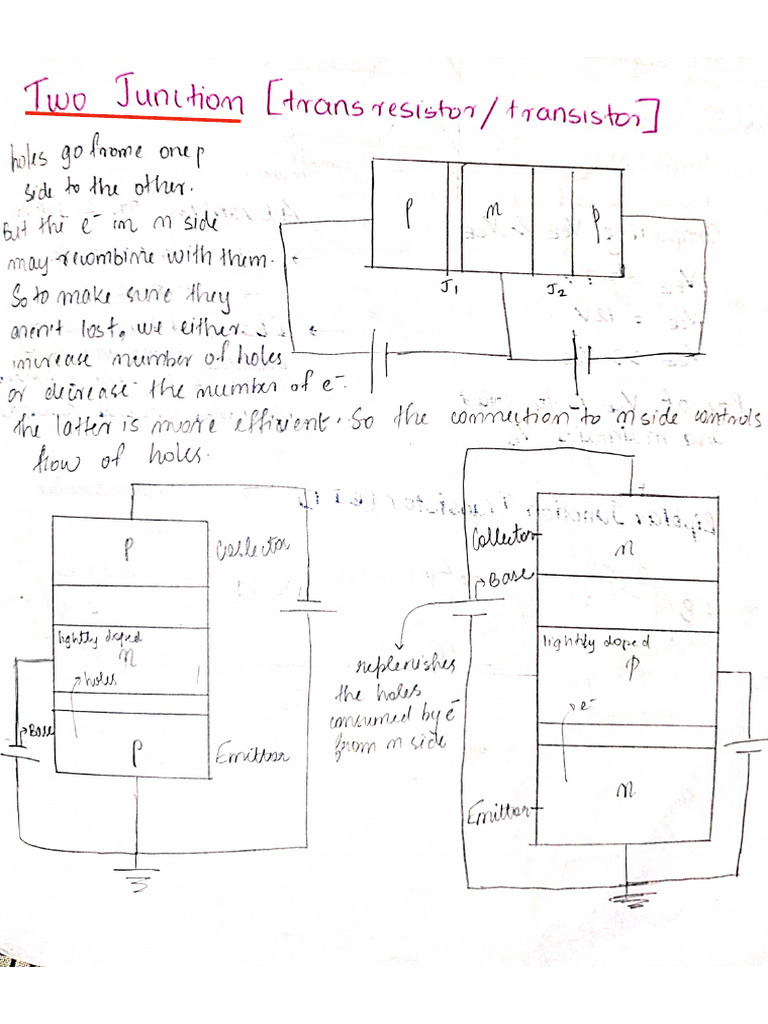 Two Junction [transresistor/transistor]
holes go frome one p
side to the other.
But the e⁻ in n side
may recombine with them.
So to make sure they
aren't lost, we either
increase number of holes
or decrease the number of e⁻.
the latter is more efficient. So the connection to n side controls
flow of holes.
p n p
J1 J2
p Collector
lightly doped
n
holes
Base
p Emitter
replenishes
the holes
consumed by e⁻
from n side
Collector
n
Base
lightly doped
p
e⁻
n
Emitter